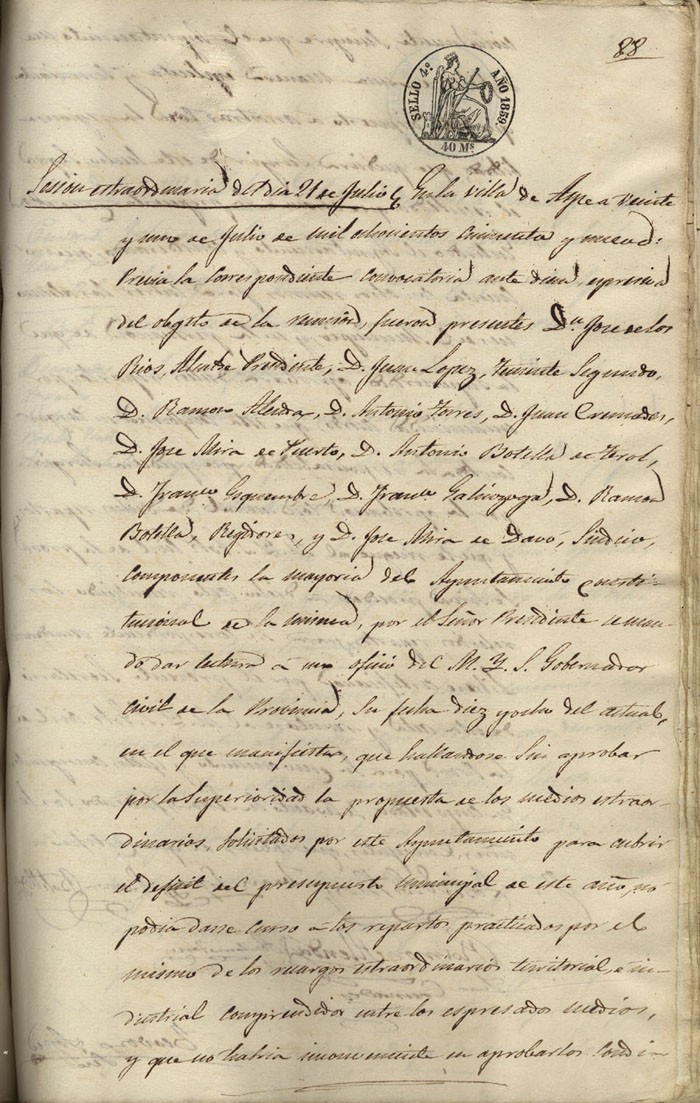 88
SELLO 4º AÑO 1859.
40 Ms
Sesion estraordinaria del dia 21 de Julio En la villa de Aspe a veinte
y uno de Julio de mil ochocientos cincuenta y nueve:
Previa la correspondiente convocatoria ante diem, espresiva
del obgeto de la reunion, fueron presentes Dn Jose de los
Rios, Alcalde Presidente, D. Juan Lopez, Teniente Segundo,
D. Ramon Alcida, D. Antonio Torres, D. Juan Cremades,
D. Jose Mira de Puerto, D. Antonio Botella de Terol,
D. Franco Esquembre, D. Franco Galinzoga, D. Ramon
Botella, Regidores, y D. Jose Mira de Davó, Sindico,
componentes la mayoria del Ayuntamiento consti-
tucional de la misma, por el Señor Presidente se man-
dó dar lectura á un oficio del M. Y. S. Gobernador
Civil de la Provincia, su fecha diez y ocho del actual,
en el que manifiesta, que hallandose sin aprobar
por la Superioridad la propuesta de los medios estraor-
dinarios, solicitados por este Ayuntamiento para cubrir
el deficit del presupuesto municipal de este año, no
podia darse curso a los repartos practicados por el
mismo de los recargos estraordinarios territorial, é in-
dustrial comprendidos entre los espresados medios,
y que no habria inconveniente en aprobarlos condi-